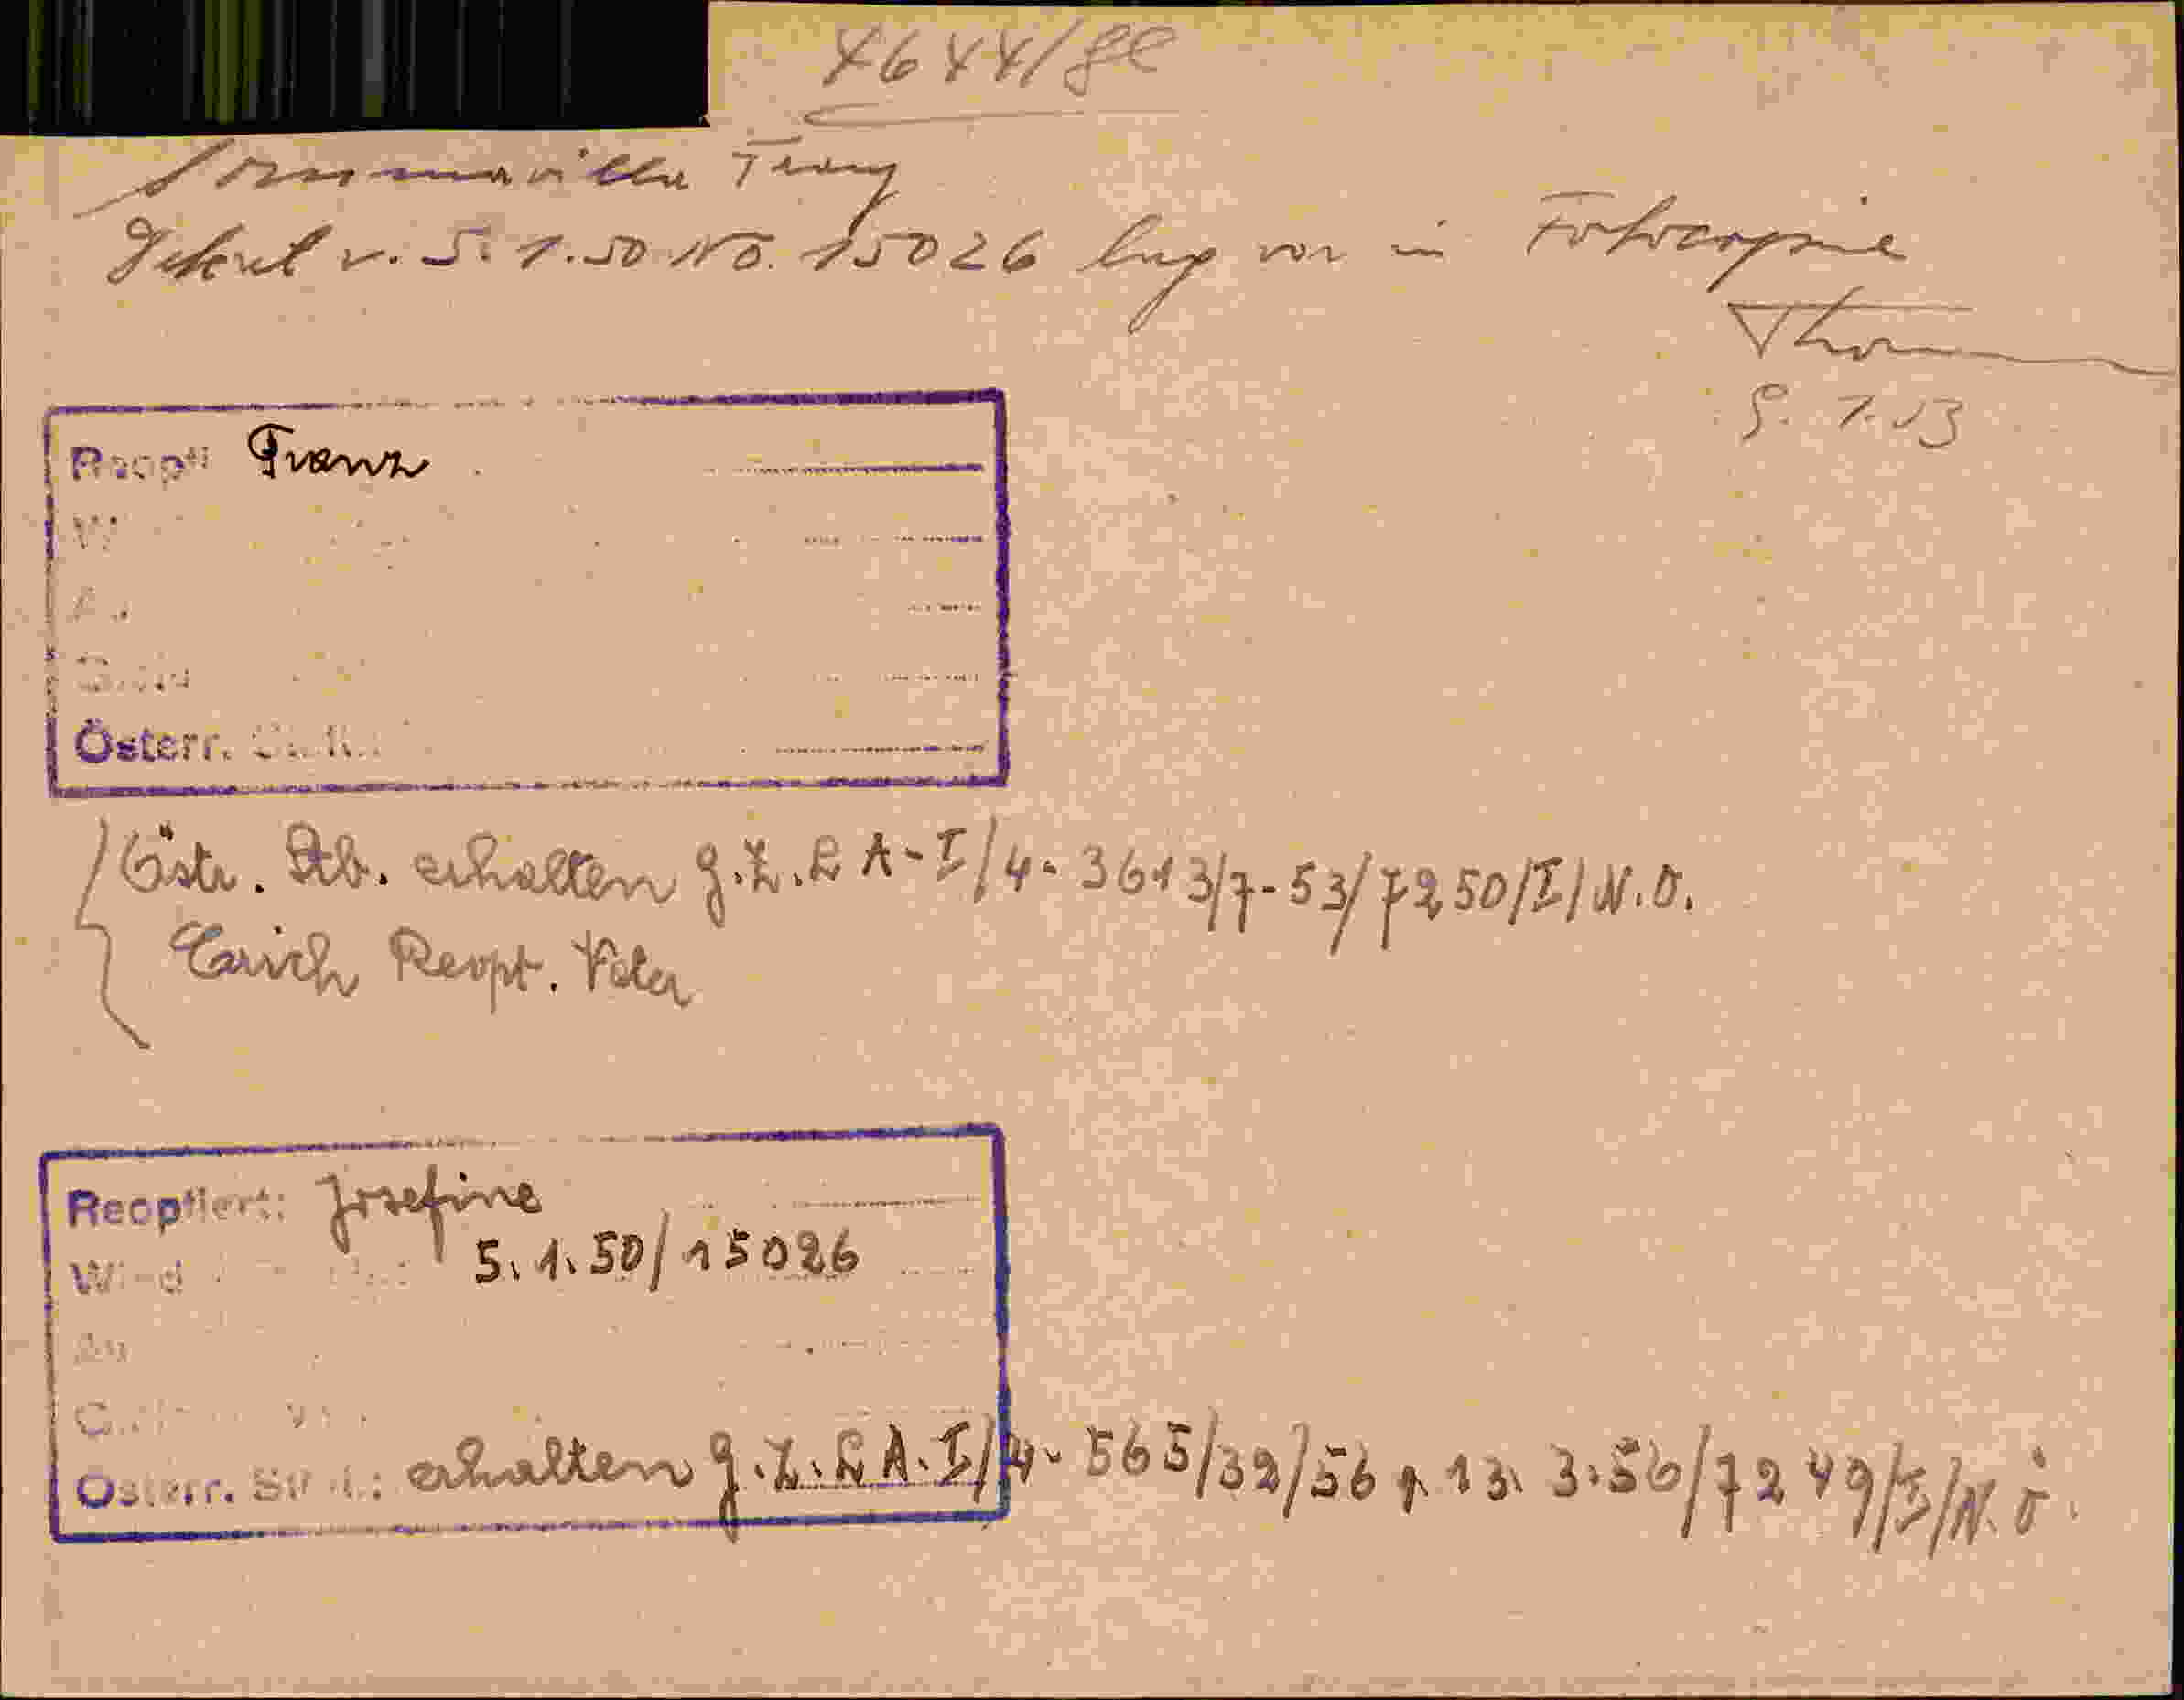 4644/
Sommavilla Franz
Dekret v. 5. 1. 50 No. 15026 lag vor in Fotocopie
Thom
Reopti Franz
Österr.
Östr. Stb. erhalten g.Z. LA-I/4-3613/7-53/7250/I/N.O.
Erich Reopt. Vater
Reoptiert: Josefine
5.1.50/15026
Österr. St. erhalten g.Z. LA.I/4-565/32/56 13. 3.56/7249/I/N.O.